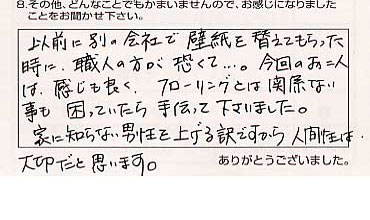 8.その他、どんなことでもかまいませんので、お感じになりました
ことをお聞かせ下さい。
以前に別の会社で壁紙を替えてもらった
時に、職人の方が恐くて…。今回のお二人
は、感じも良く、フローリングとは関係ない
事も困っていたら手伝って下さいました。
家に知らない男性を上げる訳ですから人間性は
大切だと思います。
ありがとうございました。